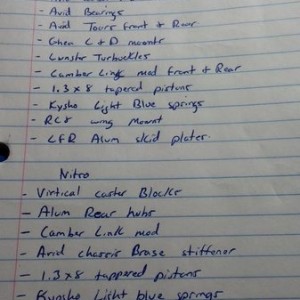 - Avid Bearings
- Avid Tours Front & Rear
- Ghea C & D mounts
- Lunsfor Turbuckles
- Camber Link mod front & Rear
- 1.3 x 8 tapered pistons
- Kysho Light Blue springs
- RC8 wing Mount
- LFR Alum skid plater
Nitro
- Virtical caster Blocks
- Alum Rear hubs
- Camber Link mod
- Avid chassis Brase stiffenor
- 1.3x8 tappered pistons
- Kyosho Light blue springs